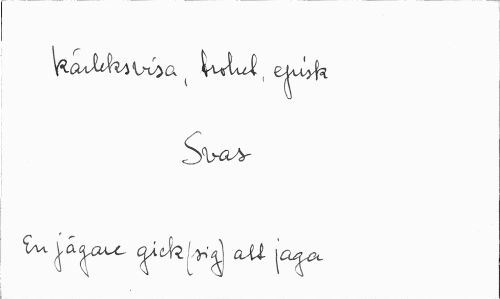 Kärleksvisa, trohet, episk
Svas
En jägare gick (sig) att jaga